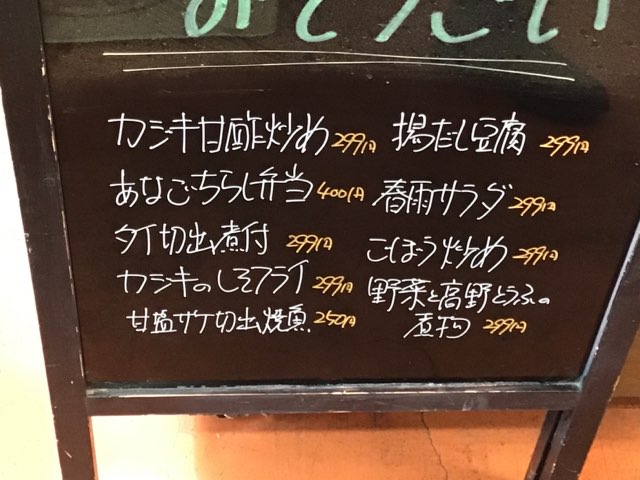 カジキ甘酢炒め 299円
あなごちらし弁当 400円
タイ切出し煮付 299円
カジキのしそフライ 299円
甘塩サケ切出し焼魚 250円
揚だし豆腐 299円
春雨サラダ 299円
ごぼう炒め 299円
野菜と高野とうふの
煮物 299円